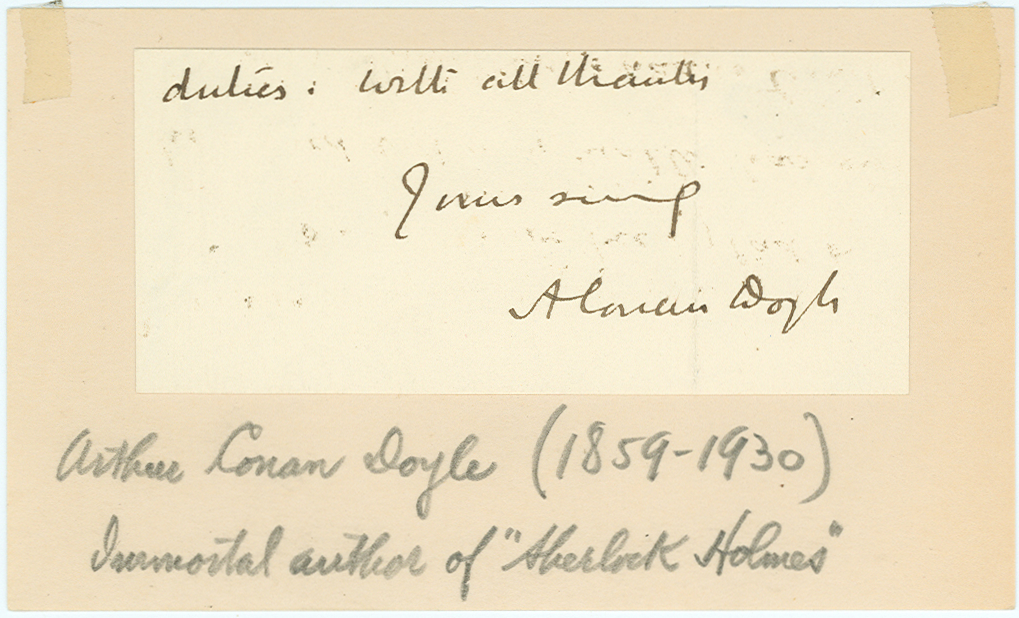 duties : with all thanks
Yours sincy
A Conan Doyle
Arthur Conan Doyle (1859-1930)
Immortal author of "Sherlock Holmes"